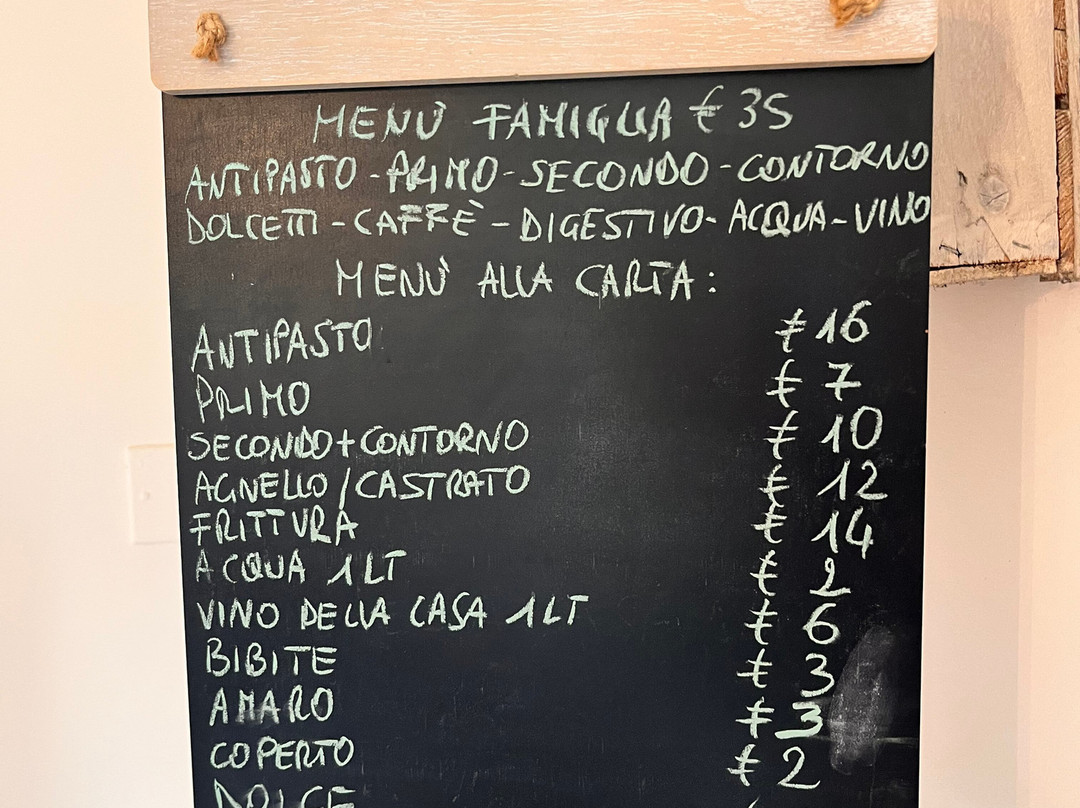 MENÙ FAMIGLIA € 35
ANTIPASTO - PRIMO - SECONDO - CONTORNO
DOLCETTI - CAFFÈ - DIGESTIVO - ACQUA - VINO
MENÙ ALLA CARTA:
ANTIPASTO € 16
PRIMO € 7
SECONDO + CONTORNO € 10
AGNELLO / CASTRATO € 12
FRITTURA € 14
ACQUA 1 LT € 2
VINO DELLA CASA 1 LT € 6
BIBITE € 3
AMARO € 3
COPERTO € 2
DOLCE